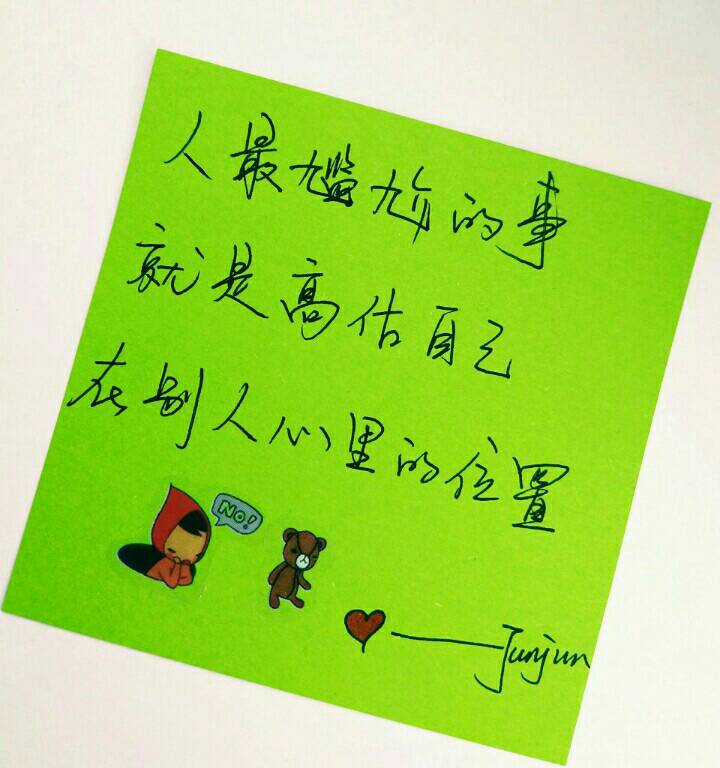 人最尴尬的事
就是高估自己
在别人心里的位置
NO!
——Junjun